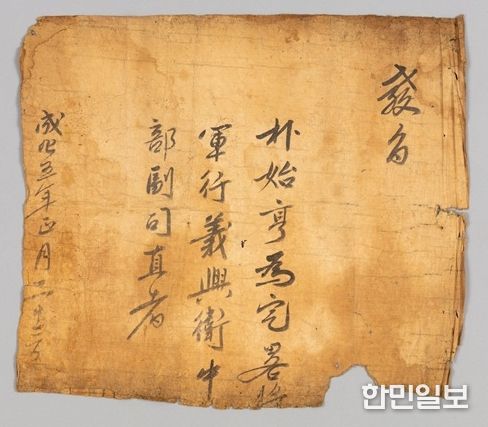 敎旨
朴始亨爲定畧將
軍行義興衛中
部副司直者
成化五年正月二十二日
한민일보